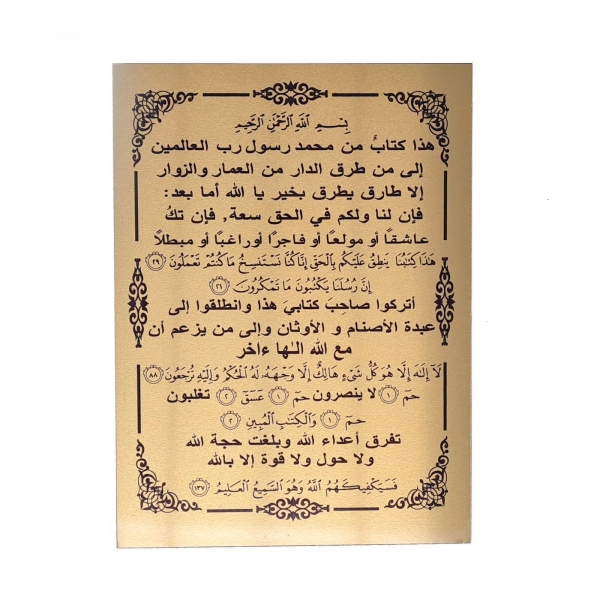 بِسْمِ اللَّهِ الرَّحْمَٰنِ الرَّحِيمِ
هذا كتابٌ من محمد رسول رب العالمين
إلى من طرق الدار من العمار والزوار
إلا طارق يطرق بخير يا الله أما بعد:
فإن لنا ولكم في الحق سعة, فإن تكُ
عاشقاً أو مولعاً أو فاجراً أوراغباً أو مبطلاً
هَٰذَا كِتَابُنَا يَنطِقُ عَلَيْكُم بِالْحَقِّ إِنَّا كُنَّا نَسْتَنسِخُ مَا كُنتُمْ تَعْمَلُونَ ٢٩
إِنَّ رُسُلَنَا يَكْتُبُونَ مَا تَمْكُرُونَ ٢١
أتركوا صاحبَ كتابيَ هذا وانطلقوا إلى
عبدة الأصنام و الأوثان وإلى من يزعم أن
مع الله الـها ءاخر
لَا إِلَٰهَ إِلَّا هُوَ كُلُّ شَيْءٍ هَالِكٌ إِلَّا وَجْهَهُ لَهُ الْحُكْمُ وَإِلَيْهِ تُرْجَعُونَ ٨٨
حمٓ ١ لا ينصرون حمٓ ١ عٓسٓقٓ ٢ تغلبون
حمٓ ١ وَالْكِتَابِ الْمُبِينِ ٢
تفرق أعداء الله وبلغت حجة الله
ولا حول ولا قوة إلا بالله
فَسَيَكْفِيكَهُمُ اللَّهُ وَهُوَ السَّمِيعُ الْعَلِيمُ ١٣٧